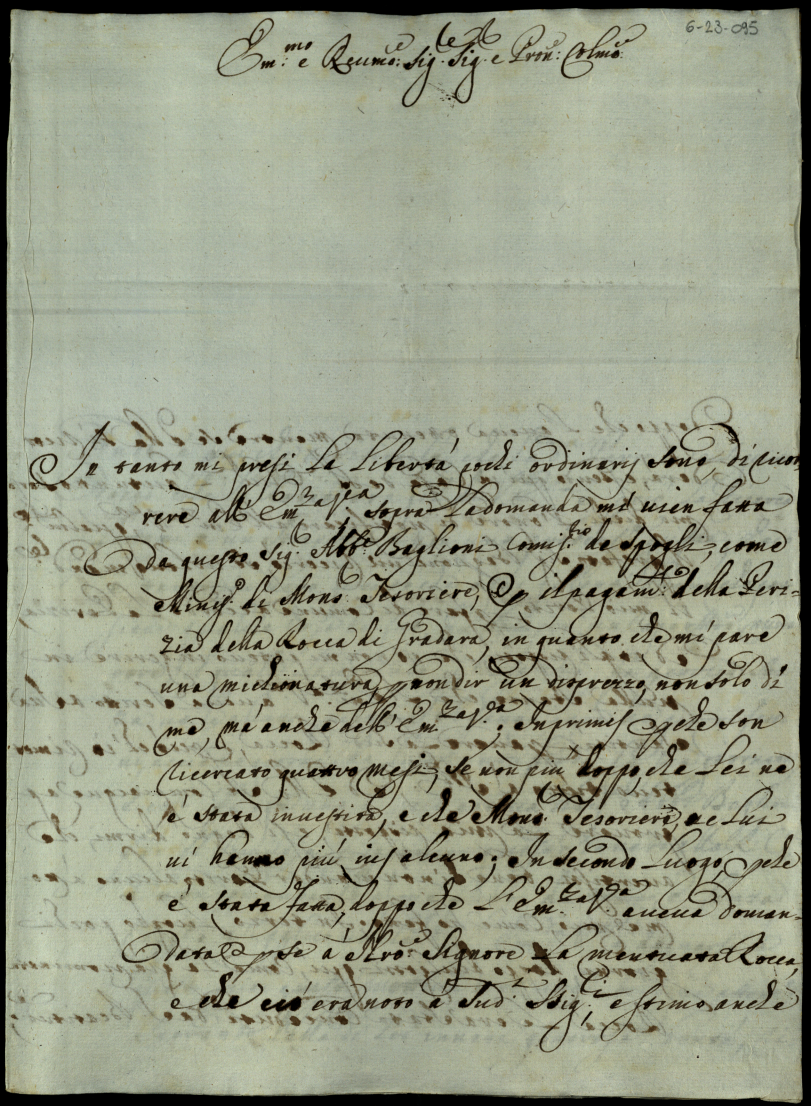 6-23-095
Em.mo e Reumo: Sig.re Sig.re e Pron: Colmo
In tanto mi presi La Libertá pochi ordinarij sono, di ricor
rere all' Em.za V.ra sopra La domanda mi uien fatta
Da questo Sig.r Abb.e Baglioni Comis.rio de Spogli, come
Minis.o di Mons.r Tesoriere, p il pagam.to della Peri-
zia della Rocca di Gradara, in quanto che mi pare
una michionatura, p non dir un disprezzo, non solo di
me, má anche dell' Em.za V.ra; Inprimis pche son
ricercato quattro mesi, se non piú doppo, che Lei ne
é stata inuestita, e che Mons.r Tesoriere, ne Lui
ui hanno piú ius alcuno; In secondo Luogo, pche
é stata fatta, doppo che L' Em.za V.ra aueua doman-
data p se á Nro Signore La mentuata Rocca,
e che ció era noto á Sud.i Sig.ri, e stimo anche